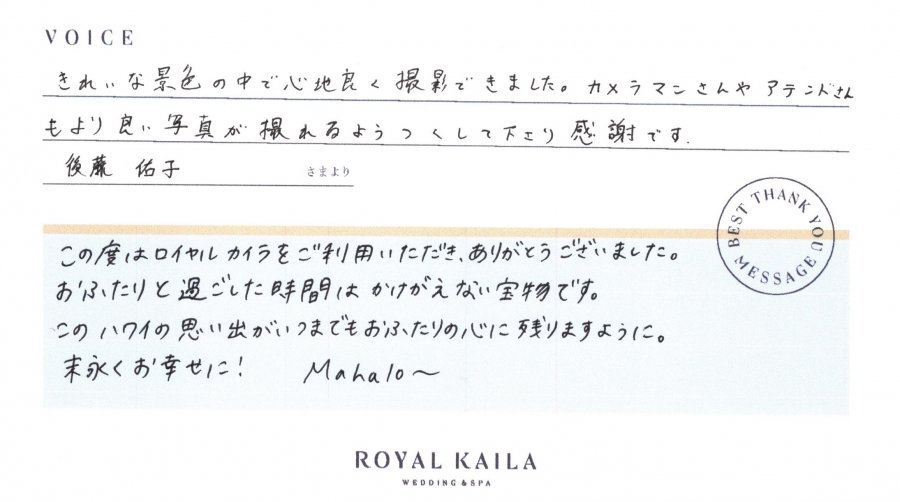 VOICE
きれいな景色の中で心地良く撮影できました。カメラマンさんやアテンドさん
もより良い写真が撮れるようつくして下さり感謝です.
後藤 佑子 さまより
BEST THANK YOU MESSAGE
この度はロイヤルカイラをご利用いただき、ありがとうございました。
おふたりと過ごした時間はかけがえない宝物です。
このハワイの思い出がいつまでもおふたりの心に残りますように。
末永くお幸せに! Mahalo〜
ROYAL KAILA
WEDDING & SPA